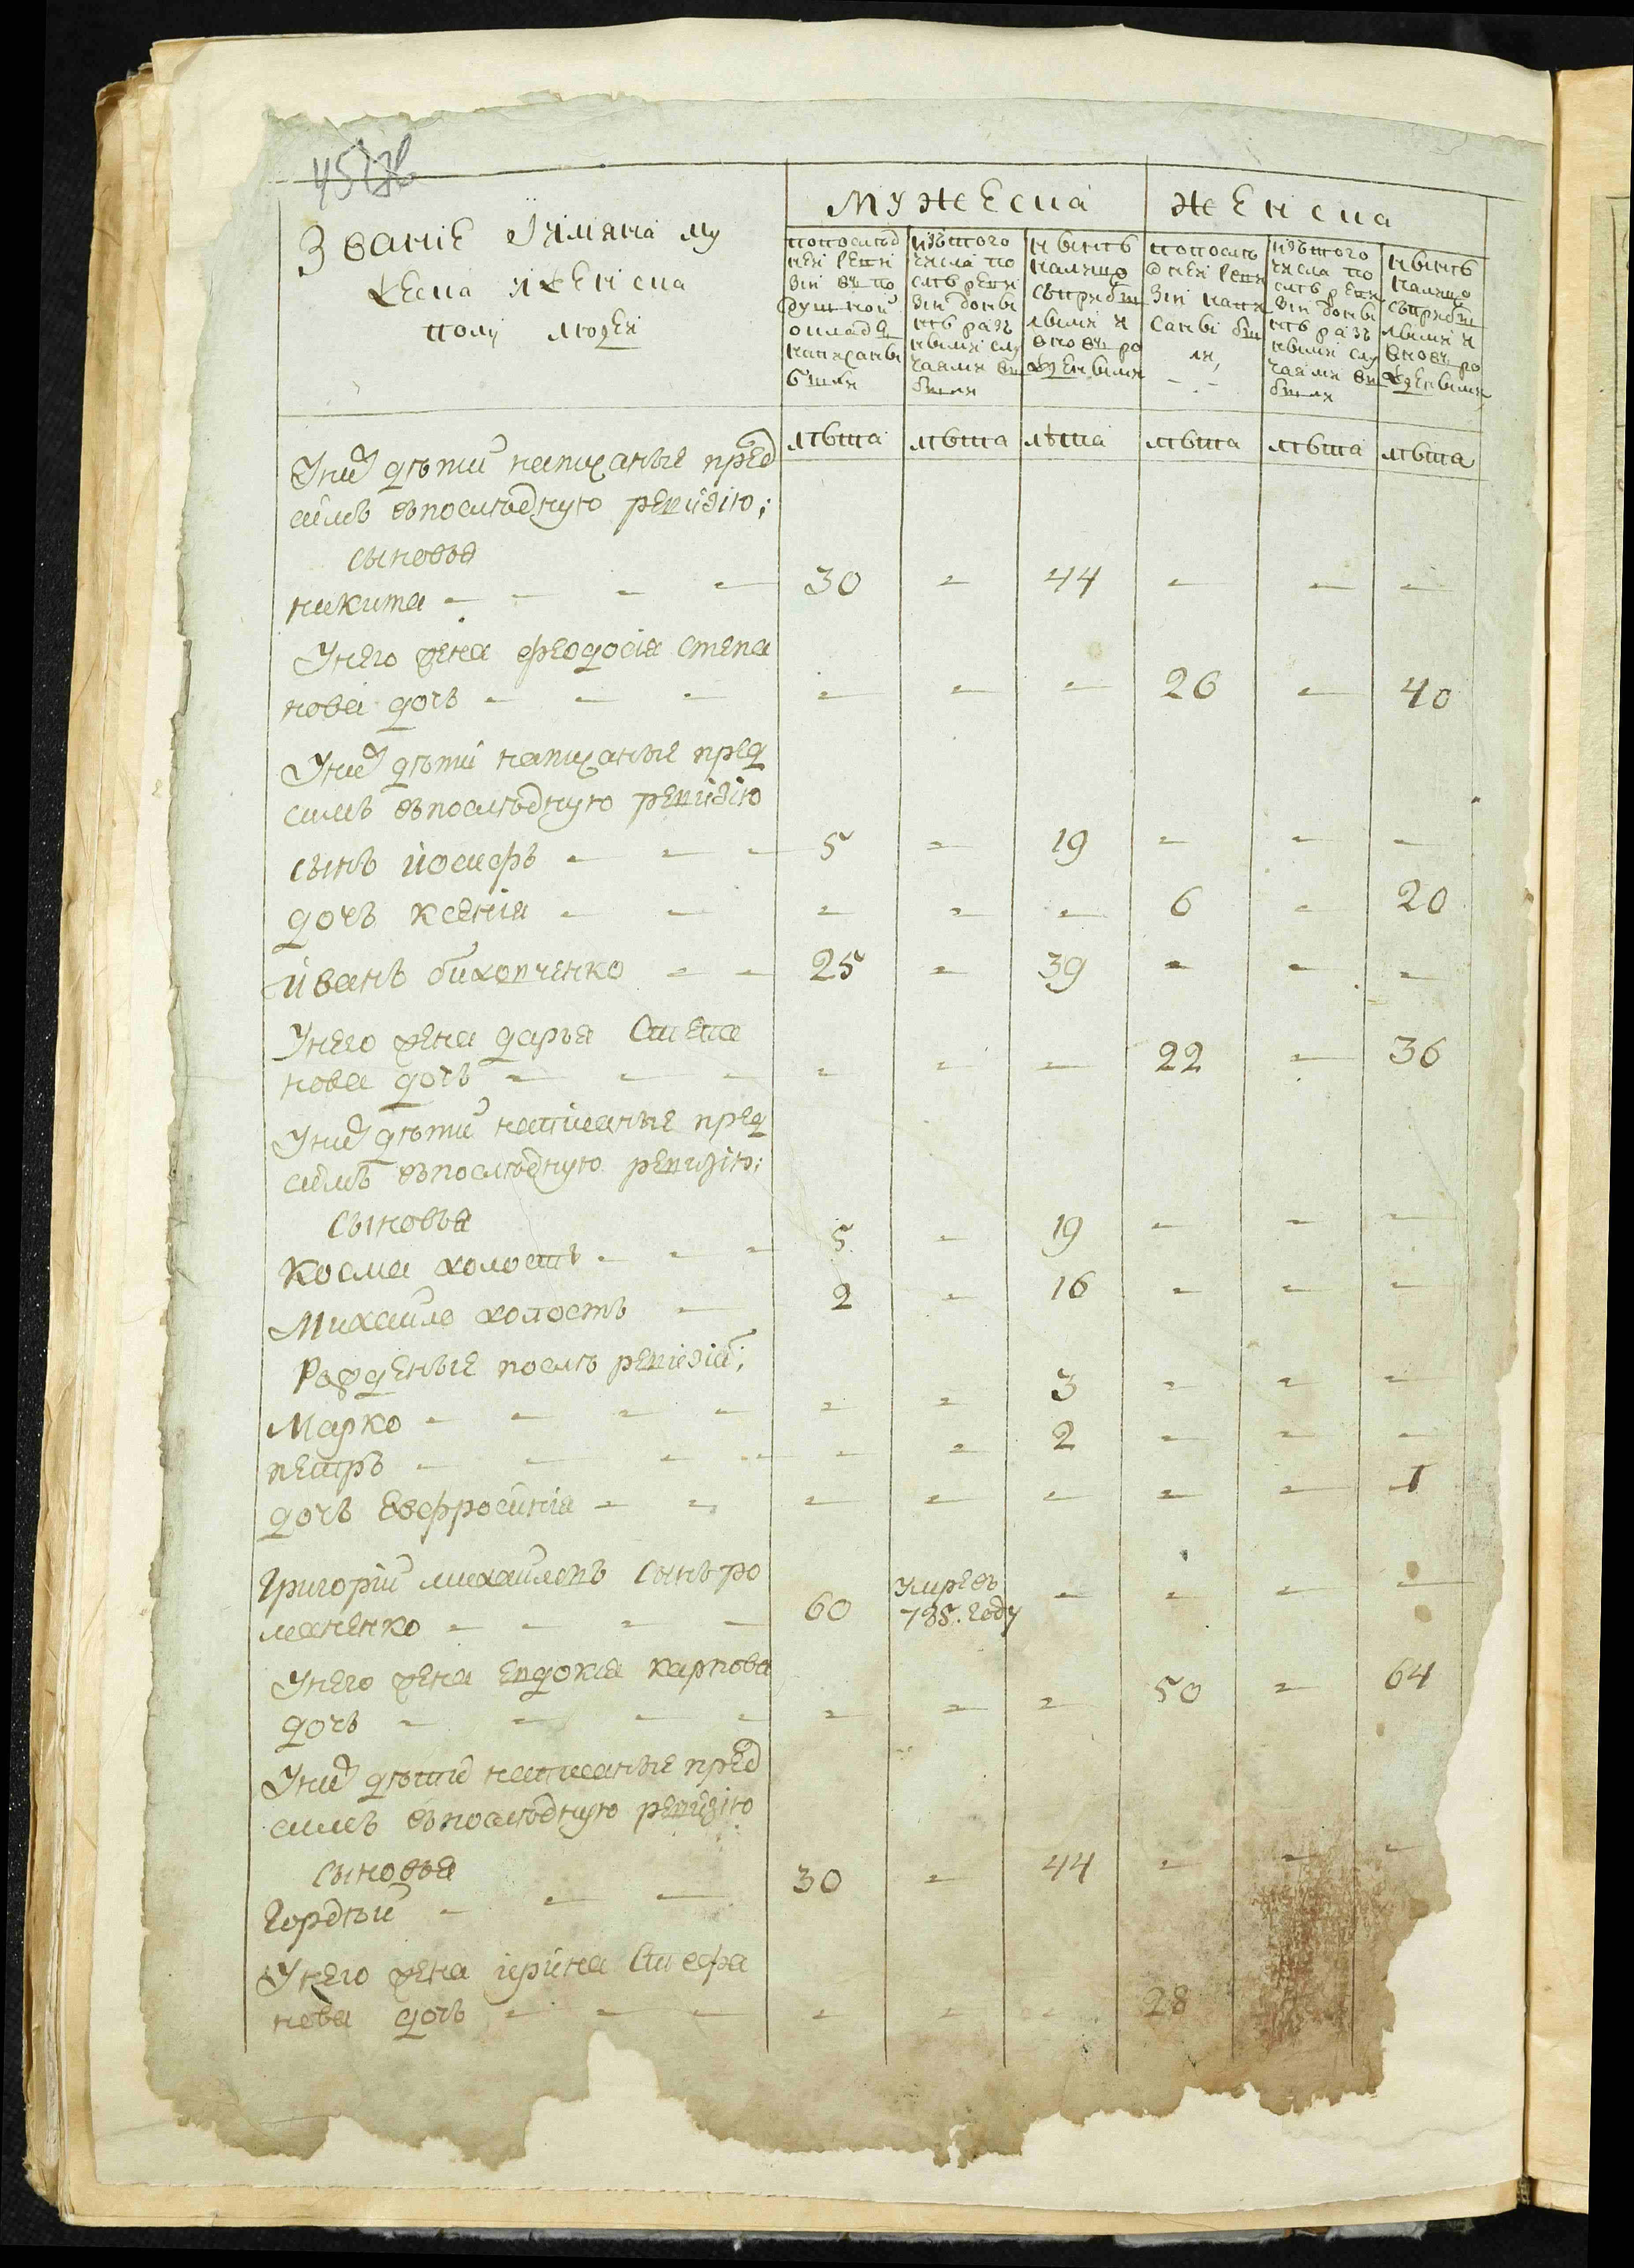 Званіе иимана му
жеска иженска
полу людей
мужеска
женска
попослѣд
ней реви
зіи въ по
душной
окладъ
написаны
были
изътого
числа по
слѣ реви
зіи воны
нѣ разъ
ными слу
чаями вы
были
нынѣ
налицо
съприбы
лыми и
вновь ро
ждеными
попослѣ
дней реви
зіи напи
саны бы
ли,
изътого
числа по
слѣ реви
зіи воны
нѣ разъ
ными слу
чаями вы
были
нынѣ
налицо
съприбы
лыми и
вновь ро
ждеными
лѣта лѣта лѣта лѣта лѣта лѣта
Уних дѣти написаные пред
симъ въпослѣдную ревизію;
сыновья
никита - - - - 30 - 44 - - -
Унего жена феодосіа степа
нова дочь - - - - - - 26 - 40
Уних дѣти написаные пред
симъ въпослѣдную ревизію
сынъ иосифъ - - - 5 - 19 - - -
дочь ксеніа - - - - - 6 - 20
иванъ бихопченко - - 25 - 39 - - -
Унего жена дарья Степа
нова дочь - - - - - - 22 - 36
Уних дѣти написаные пред
симъ въпослѣдную ревизію;
сыновья
Косма холостъ - - - 5 - 19 - - -
Михаилъ холостъ - 2 - 16 - - -
Рожденые послѣ ревизіи;
Марко - - - - - - 3 - - -
петръ - - - - - - 2 - - -
дочь Евфросиніа - - - - - - - 1
Григорій михайловъ сынъ ро
маненко - - - - 60 умревъ 785. году - - - -
Унего жена евдокиа карпова
дочь - - - - - - - 50 - 64
Уних дѣти написаные пред
симъ въпослѣдную ревизію
сыновья
Гордѣй - - - 30 - 44 - - -
Унего жена ирина Стефа
нова дочь - - - - - - 28